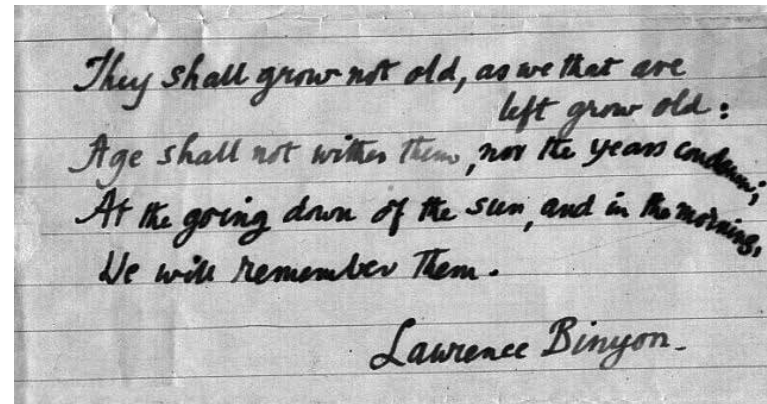 They shall grow not old, as we that are
left grow old:
Age shall not wither them, nor the years condemn;
At the going down of the sun, and in the morning,
We will remember them.
Lawrence Binyon.